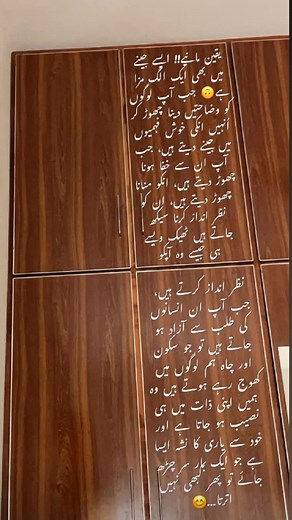 یقین مانیے!! ایسے جینے
میں بھی ایک الگ مزا
ہے🙃 جب آپ لوگوں
کو وضاحتیں دینا چھوڑ کر
انہیں انکی خوش فہمیوں
میں جینے دیتے ہیں، جب
آپ ان سے خفا ہونا
چھوڑ دیتے ہیں، انکو منانا
چھوڑ دیتے ہیں، ان کو
نظر انداز کرنا سیکھ
جاتے ہیں ٹھیک ویسے
ہی جیسے وہ آپکو
نظر انداز کرتے ہیں،
جب آپ ان انسانوں
کی طلب سے آزاد ہو
جاتے ہیں تو جو سکون
اور چاہ ہم لوگوں میں
کھوج رہے ہوتے ہیں وہ
ہمیں اپنی ذات میں ہی
نصیب ہو جاتا ہے اور
خود سے یاری کا نشہ ایسا
ہے جو ایک بار سر چڑھ
جائے تو پھر کبھی نہیں
اترتا...😊